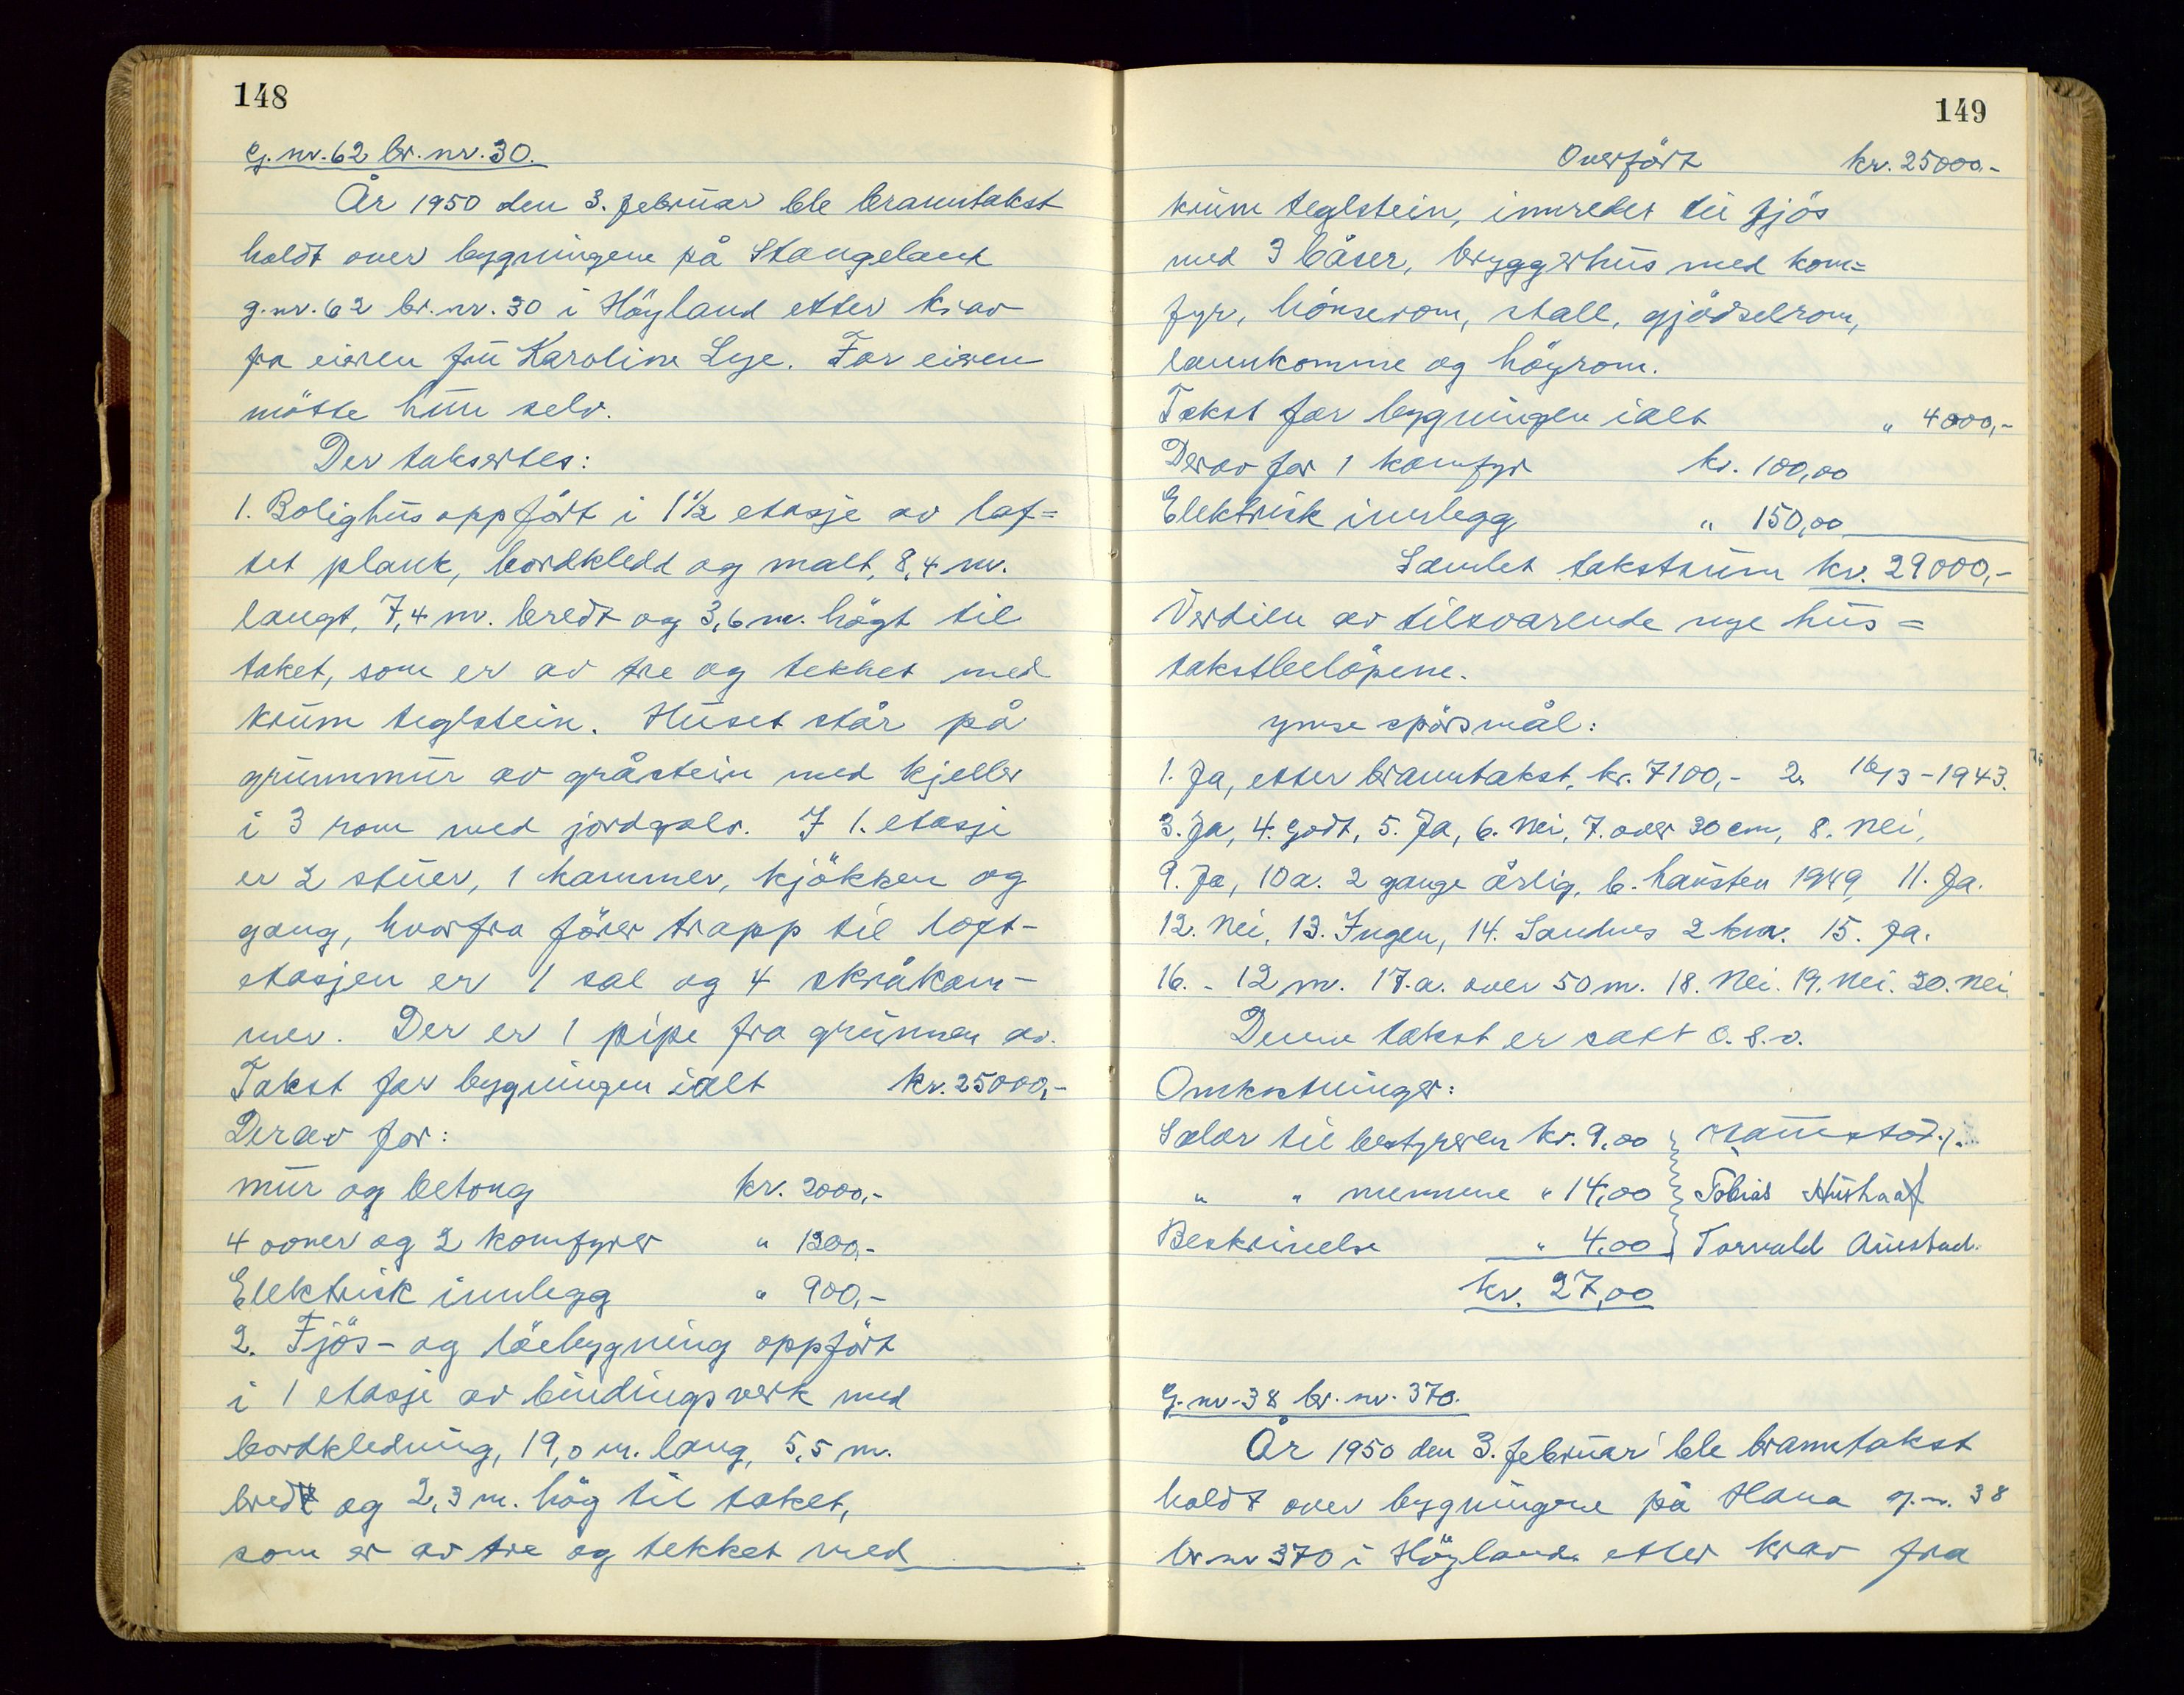 148
G.nr. 62 br.nr. 30.
År 1950 den 3. februar ble branntakst
holdt over bygningene på Stangeland
g.nr. 62 br.nr. 30 i Höyland etter krav
fra eieren fru Karoline Lye. For eieren
mötte hun selv.
Der takseres:
1. Bolighus oppfört i 1½ etasje av laf=
tet plank, bordkledd og malt, 8,4 m.
langt, 7,4 m. bredt og 3,6 m. högt til
taket, som er av tre og tekket med
krum teglstein. Huset står på
grunnmur av gråstein med kjeller
i 3 rom med jordgolv. I 1. etasje
er 2 stuer, 1 kammer, kjökken og
gang, hvorfra förer trapp til loft-
etasjen er 1 sal og 4 skråkam-
mer. Der er 1 pipe fra grunnen av.
Takst for bygningen ialt kr. 25000,-
Derav for:
mur og betong kr. 2000,-
4 ovner og 2 komfyrer " 1200,-
Elektrisk innlegg " 900,-
2. Fjös- og löebygning oppfört
i 1 etasje av bindingsverk med
bordkledning, 19,0 m. lang, 5,5 m.
bred og 2,3 m. hög til taket,
som er av tre og tekket med
149
Overfört kr. 25000,-
krum teglstein, innredet til fjös
med 3 båser, bryggerhus med kom=
fyr, hönserom, stall, gjödselrom,
lannkomme og höyrom.
Takst for bygningen ialt " 4000,-
Derav for 1 komfyr kr. 100,00
Elektrisk innlegg " 150,00
Samlet takstsum kr. 29000,-
Verdien av tilsvarende nye hus =
takstbelöpene.
ymse spörsmål:
1. Ja, etter branntakst, kr. 7100,- 2. 16/3-1943.
3. Ja, 4. Godt, 5. Ja, 6. Nei, 7. over 30 cm, 8. Nei,
9. Ja, 10a. 2 gange årlig, b. hausten 1949, 11. Ja.
12. Nei, 13. Ingen, 14. Sandnes 2 km. 15. Ja.
16. - 12 m. 17.a. over 50 m. 18. Nei. 19. Nei. 20. Nei.
Denne takst er satt o.s.v.
Omkostninger:
Salær til bestyreren kr. 9,00
" " mennene " 14,00 Tobias
Beskrivelse " 4,00 Torvald Austad.
kr. 27,00
G.nr. 38 br.nr. 370.
År 1950 den 3. februar ble branntakst
holdt over bygningene på Hana g.nr. 38
br nr 370 i Höyland. etter krav fra